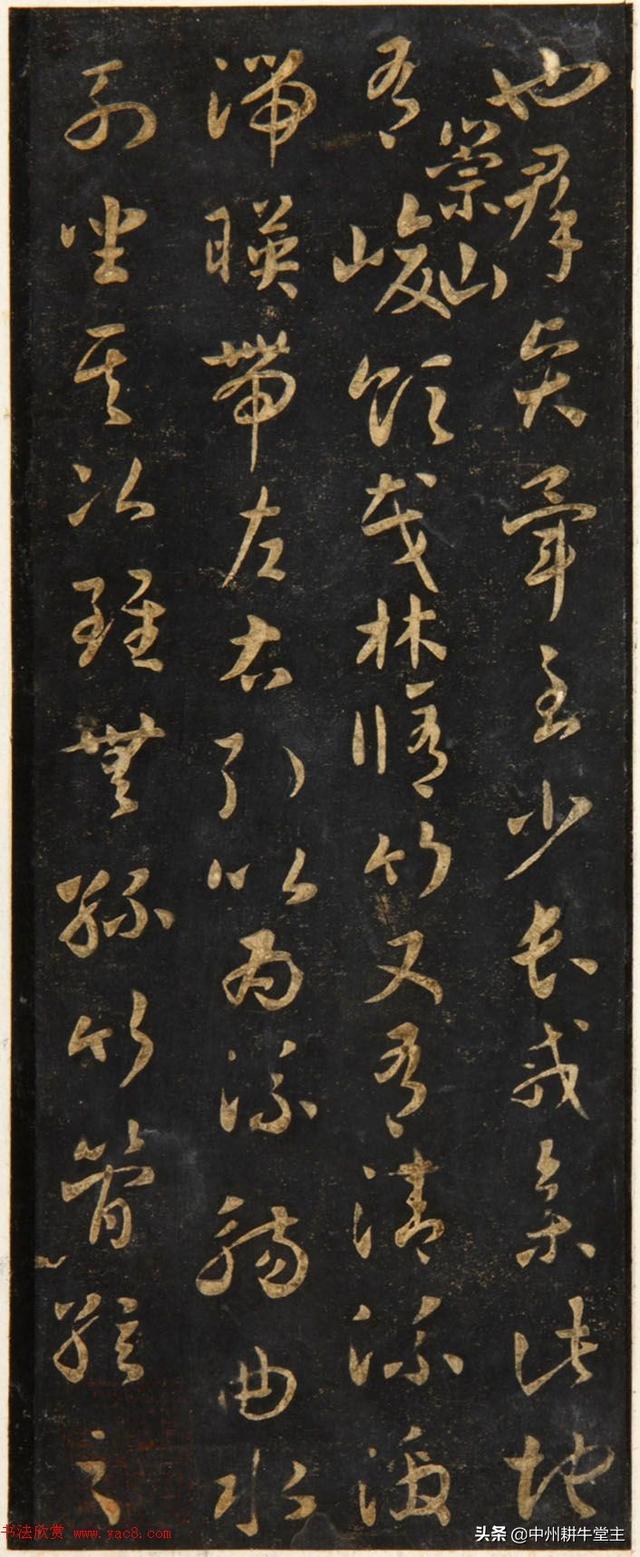 也群賢畢至少長咸集此地
有崇山峻領茂林脩竹又有清流激
湍暎帶左右引以為流觴曲水
列坐其次雖無絲竹管絃之
书法欣赏 www.yac8.com
头条 @中州耕牛堂主